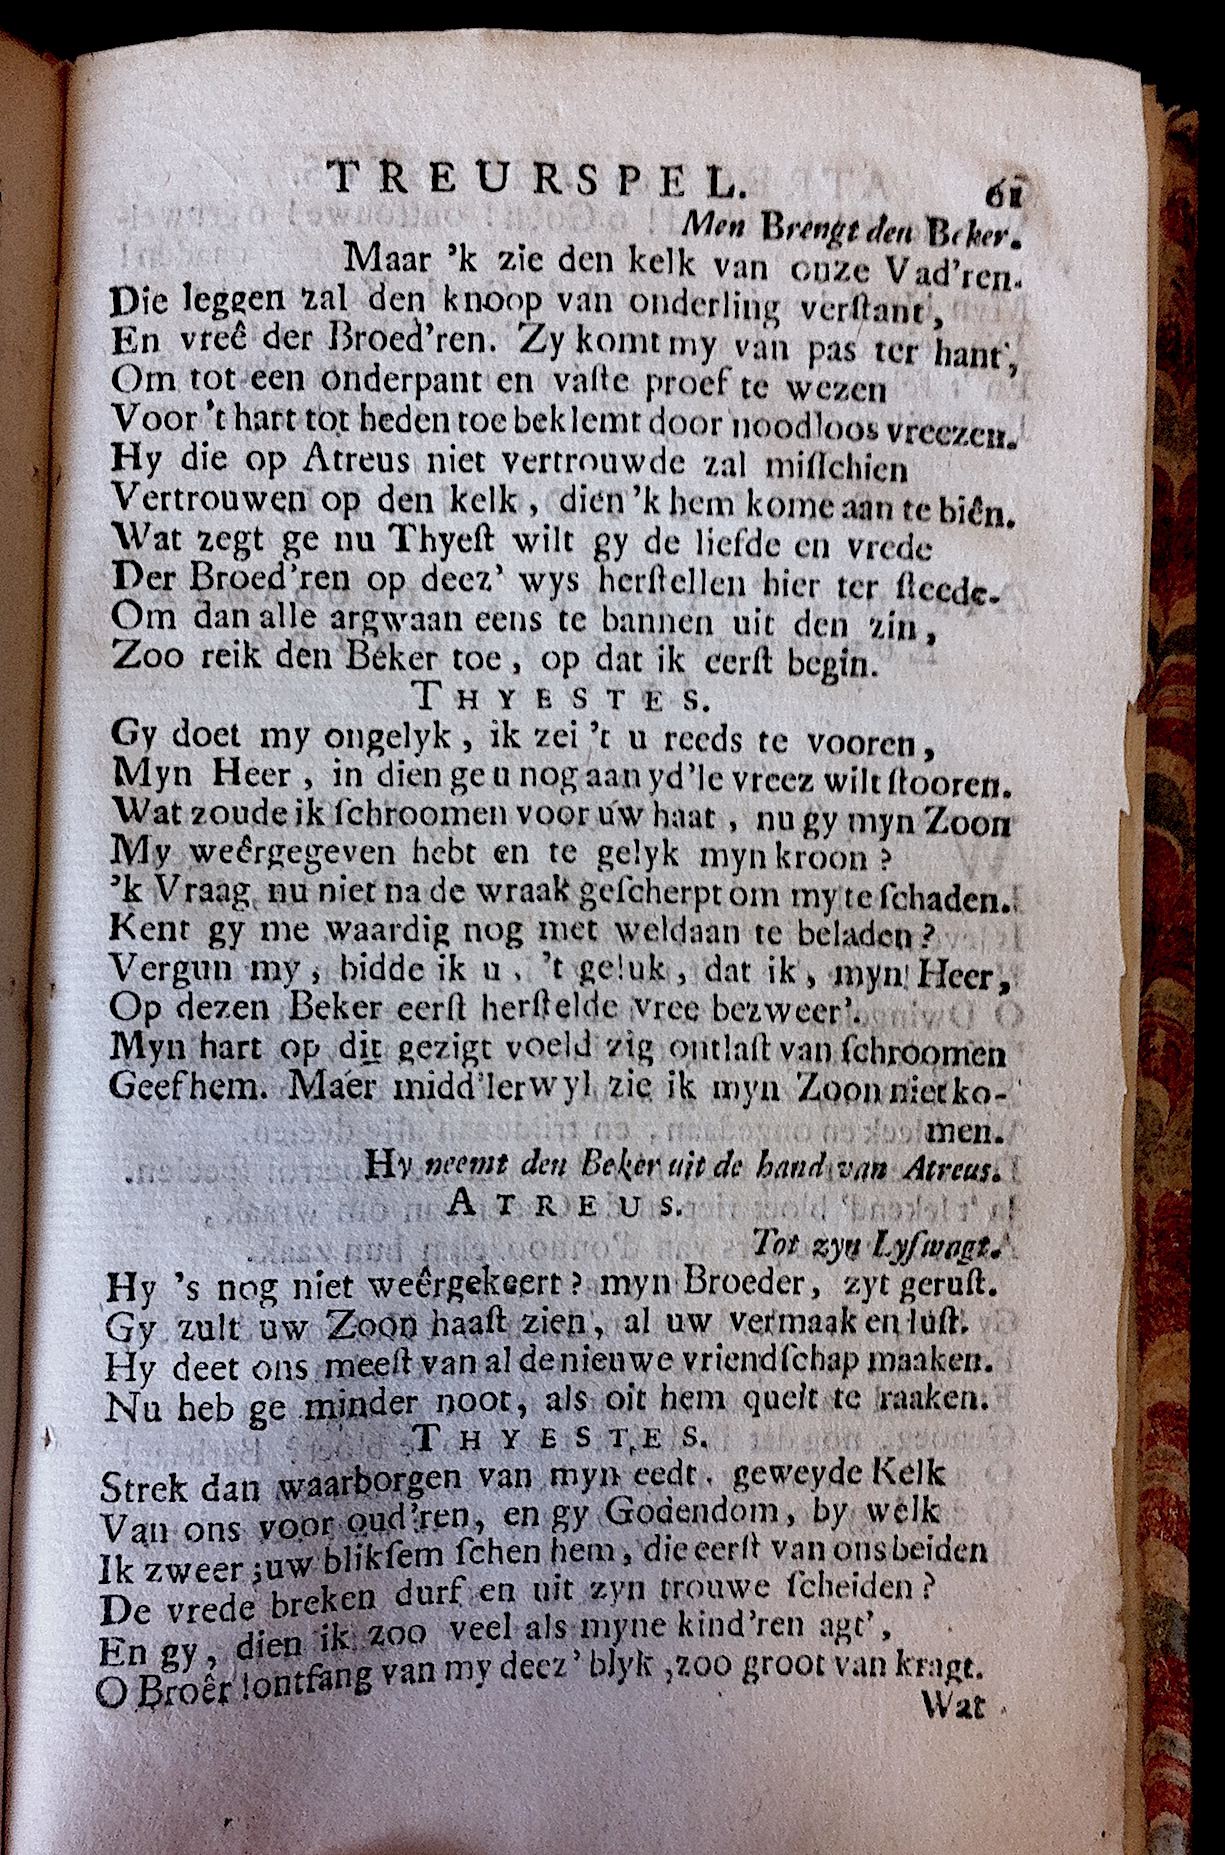 TREURSPEL. 61
Men Brengt den Beker.
Maar 'k zie den kelk van onze Vad'ren.
Die leggen zal den knoop van onderling verſtant,
En vreê der Broed'ren. Zy komt my van pas ter hant,
Om tot een onderpant en vaſte proef te wezen
Voor 't hart tot heden toe beklemt door noodloos vreezen.
Hy die op Atreus niet vertrouwde zal miſſchien
Vertrouwen op den kelk, dien 'k hem kome aan te biên.
Wat zegt ge nu Thyeſt wilt gy de liefde en vrede
Der Broed'ren op deez' wys herſtellen hier ter ſteede.
Om dan alle argwaan eens te bannen uit den zin,
Zoo reik den Beker toe, op dat ik eerſt begin.
THYESTES.
Gy doet my ongelyk, ik zei 't u reeds te vooren,
Myn Heer, in dien ge u nog aan yd'le vreez wilt ſtooren.
Wat zoude ik ſchroomen voor uw haat, nu gy myn Zoon
My weêrgegeven hebt en te gelyk myn kroon?
'k Vraag nu niet na de wraak geſcherpt om my te ſchaden.
Kent gy me waardig nog met weldaan te beladen?
Vergun my, bidde ik u, 't geluk, dat ik, myn Heer,
Op dezen Beker eerſt herſtelde vree bezweer'.
Myn hart op dit gezigt voeld zig ontlaſt van ſchroomen
Geef hem. Maer midd'lerwyl zie ik myn Zoon niet ko-
men.
Hy neemt den Beker uit de hand van Atreus.
ATREUS.
Tot zyn Lyfwagt.
Hy 's nog niet weêrgekeert? myn Broeder, zyt geruſt.
Gy zult uw Zoon haaſt zien, al uw vermaak en luſt.
Hy deet ons meeſt van al de nieuwe vriendſchap maaken.
Nu heb ge minder noot, als oit hem quelt te raaken.
THYESTES.
Strek dan waarborgen van myn eedt, geweyde Kelk
Van ons voor oud'ren, en gy Godendom, by welk
Ik zweer; uw blikſem ſchen hem, die eerſt van ons beiden
De vrede breken durf en uit zyn trouwe ſcheiden?
En gy, dien ik zoo veel als myne kind'ren agt',
O Broêr! ontfang van my deez' blyk, zoo groot van kragt.
Wat